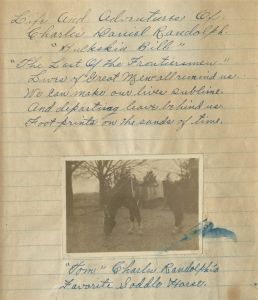 Life And Adventures Of.
Charles Daniel Randolph.
"Buckskin Bill"
"The Last Of the Frontiersmen"
Lives of Great Men all remind us.
We can make our lives sublime.
And departing leave behind us.
Foot prints on the sands of time.
"Tom" Charles Randolph's
Favorite Saddle Horse.